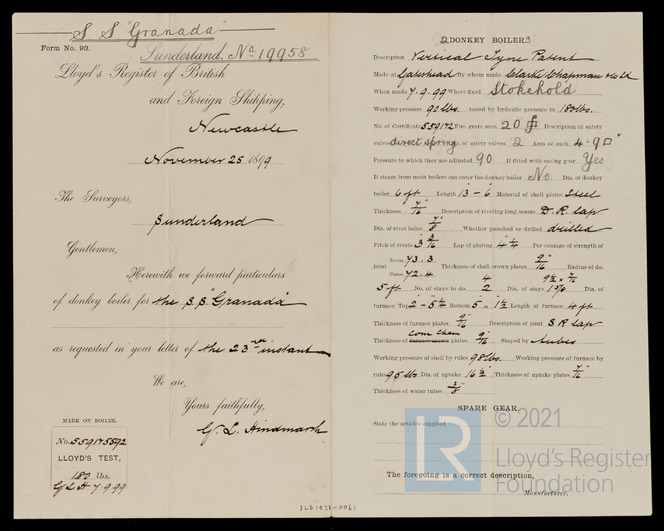 S S "Granada"
Form No. 93.
Sunderland, No 19958
Lloyd's Register of British
and Foreign Shipping,
Newcastle
November 25 1899
The Surveyors,
Sunderland
Gentlemen,
Herewith we forward particulars
of donkey boiler for the S.S. "Granada"
as requested in your letter of the 23rd instant
We are,
Yours faithfully,
G. L. Hindmarsh
MARK ON BOILER.
No.
LLOYD'S TEST,
180 lbs.
G L H 7.9.99
2 DONKEY BOILERS
Description Vertical Tyne Patent
Made at Gateshead By whom made Clarke Chapman & Co Ld
When made 7.9.99 Where fixed Stokehold
Working pressure 90 lbs. tested by hydraulic pressure to 180 lbs.
No. of Certificate Fire grate area 20 Description of safety
valves direct spring No. of safety valves 2 Area of each 4.9 □"
Pressure to which they are adjusted 90 If fitted with easing gear Yes
If steam from main boilers can enter the donkey boiler No Dia. of donkey
boiler 6 ft Length 13 - 6 Material of shell plates Steel
Thickness 7/16" Description of riveting long. seams D. R. lap
Dia. of rivet holes 7/8" Whether punched or drilled drilled
Pitch of rivets 3 3/16" Lap of plating 4 1/4" Per centage of strength of
joint Rivets 73.3 Plates 72.4 Thickness of shell crown plates 9/16" Radius of do.
5 ft No. of stays to do. Dia. of stays Dia. of
furnace Top 2" - 5 1/4 Bottom 5" 1 1/2 Length of furnace 4 ft
Thickness of furnace plates 9/16" Description of joint S R lap
Thickness of com cham plates 9/16" Stayed by tubes
Working pressure of shell by rules 98 lbs. Working pressure of furnace by
rules 95 lbs Dia. of uptake 16 1/2" Thickness of uptake plates 7/16"
Thickness of water tubes 3/8"
SPARE GEAR.
State the articles supplied:
The foregoing is a correct description,
Manufacturer.
SLD1021-0061
LR
© 2021
Lloyd's Register
Foundation